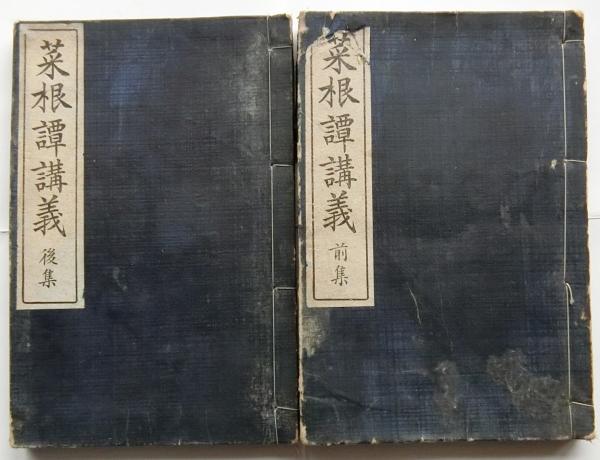 菜根譚講義
前集
菜根譚講義
後集